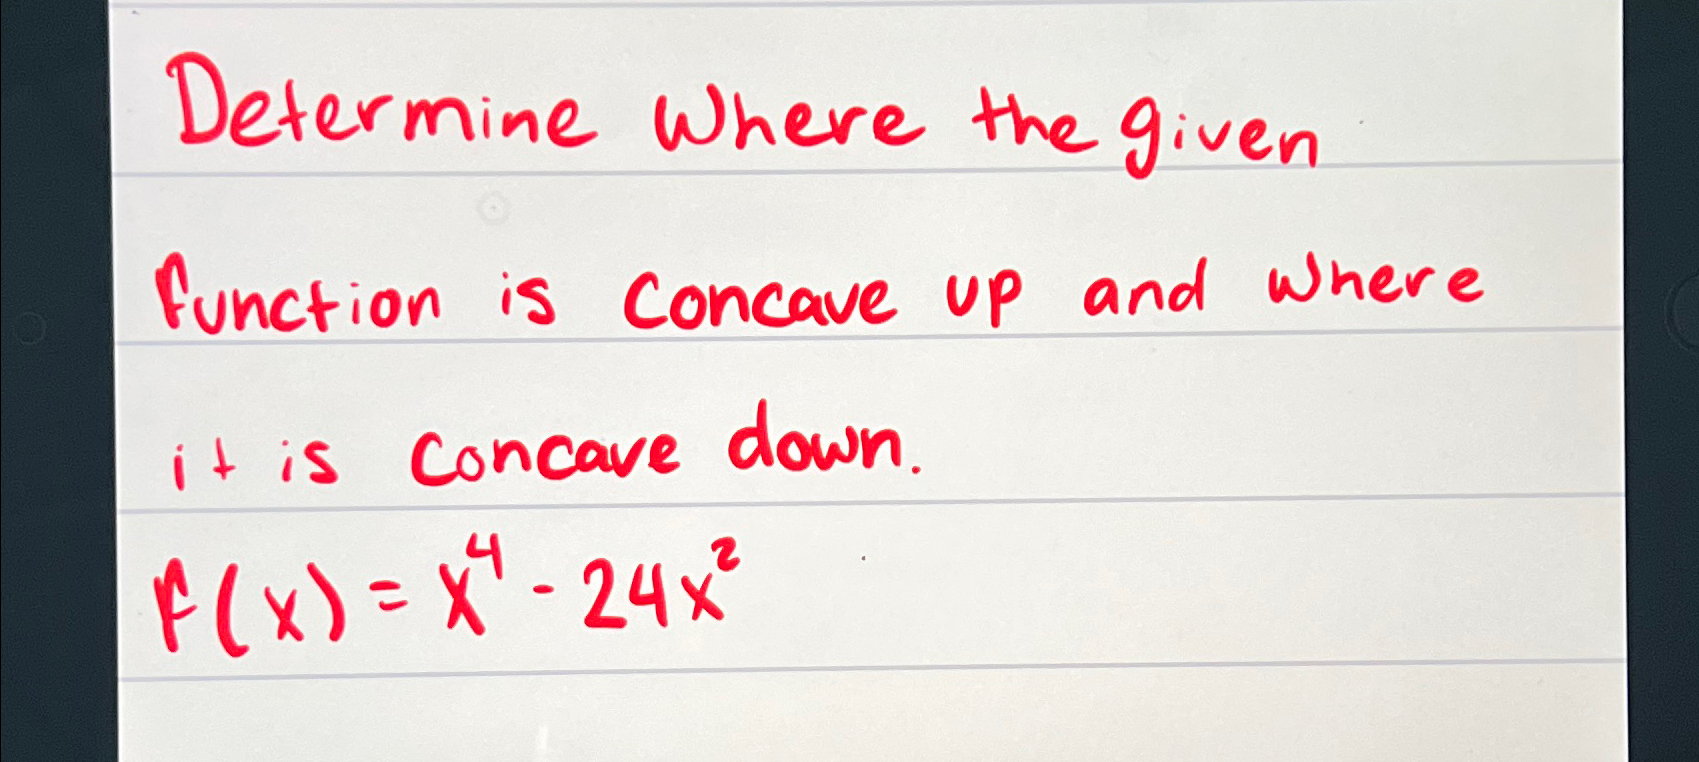 Determine where the given
function is concave up and where
it is concave down.
f(x) = x⁴ - 24x²